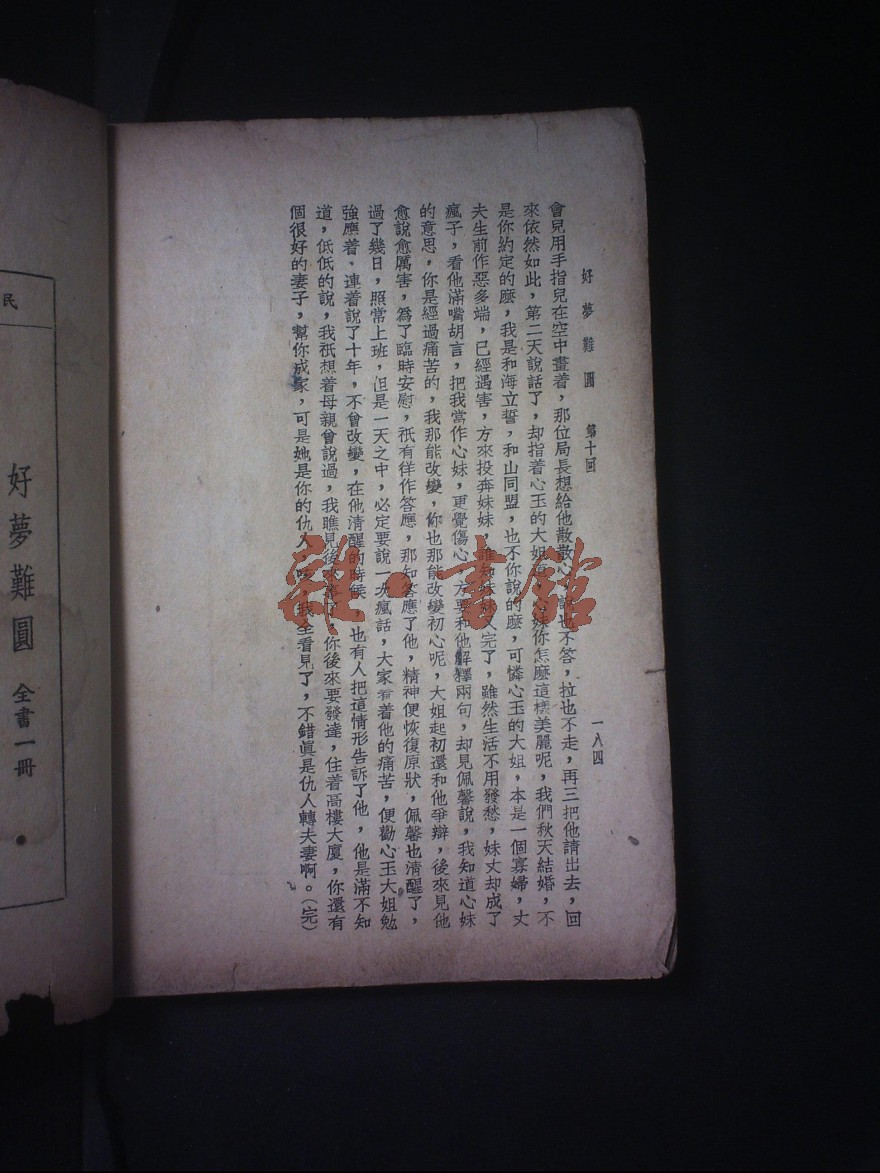 好夢難圓 第十回 一八四
會兒用手指兒在空中畫着，那位局長想給他散散心，話也不答，拉也不走，再三把他請出去，回
來依然如此，第二天說話了，却指着心玉的大姐道，心妹你怎麼這樣美麗呢，我們秋天結婚，不
是你約定的麼，我是和海立誓，和山同盟，也不你說的麼，可憐心玉的大姐，本是一個寡婦，丈
夫生前作惡多端，已經遇害，方來投奔妹妹，誰知妹妹又完了，雖然生活不用發愁，妹丈却成了
瘋子，看他滿嘴胡言，把我當作心妹，更覺傷心，方要和他解釋兩句，却見佩馨說，我知道心妹
的意思，你是經過痛苦的，我那能改變，你也那能改變初心呢，大姐起初還和他爭辯，後來見他
愈說愈厲害，爲了臨時安慰，祇有佯作答應，那知答應了他，精神便恢復原狀，佩馨也清醒了，
過了幾日，照常上班，但是一天之中，必定要說一次瘋話，大家看着他的痛苦，便勸心玉大姐勉
強應着。連着說了十年，不曾改變，在他清醒的時候，也有人把這情形告訴了他，他是滿不知
道，低低的說，我祇想着母親曾說過，我瞧見後來了，你後來要發達，住着高樓大廈，你還有
個很好的妻子，幫你成家，可是她是你的仇人，咳，我全看見了，不錯眞是仇人轉夫妻啊。（完）
民
好夢難圓 全書一冊
雜·書館